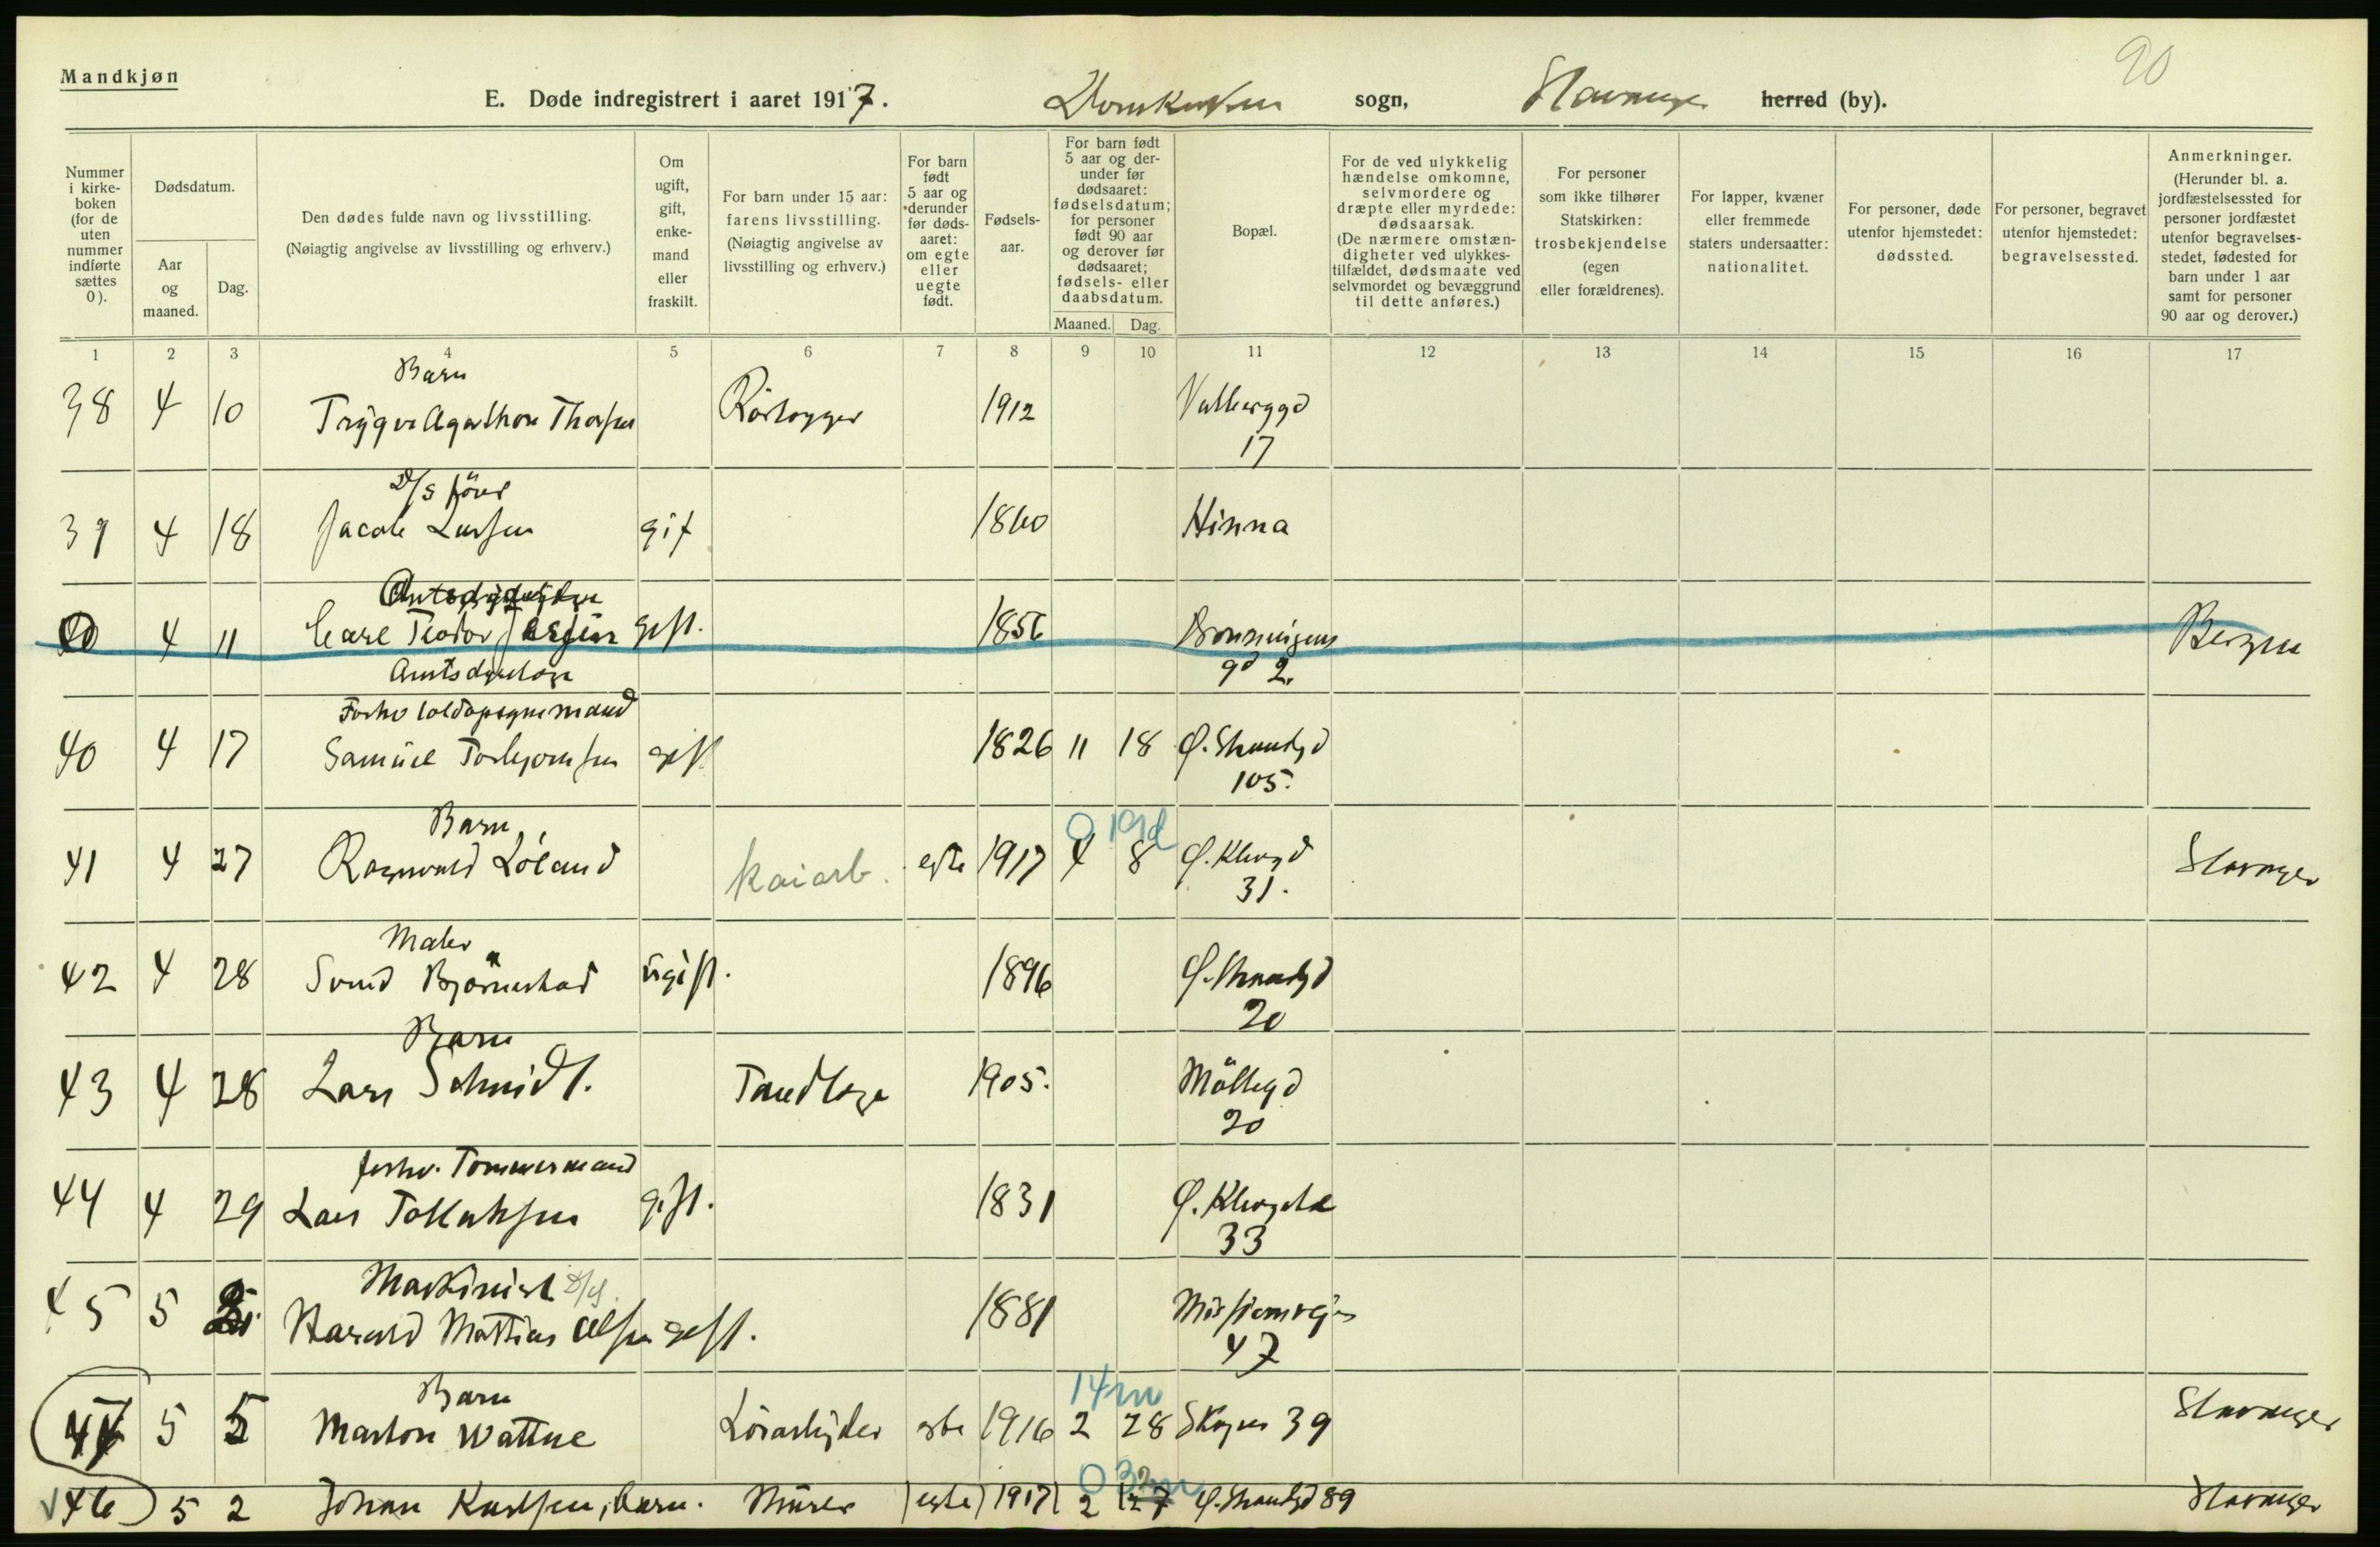 90
Mandkjøn
E. Døde indregistrert i aaret 1917. Domkirken sogn, Stavanger herred (by).
Nummer i kirkeboken (for de uten nummer indførte sættes 0).
Dødsdatum.
Aar og maaned.
Dag.
Den dødes fulde navn og livsstilling.
(Nøiagtig angivelse av livsstilling og erhverv.)
Om ugift, gift, enkemand eller fraskilt.
For barn under 15 aar: farens livsstilling. (Nøiagtig angivelse av livsstilling og erhverv.)
For barn født 5 aar og derunder før dødsaaret: om egte eller uegte født.
Fødselsaar.
For barn født 5 aar og derunder før dødsaaret: fødselsdatum; for personer født 90 aar og derover før dødsaaret; fødsels- eller daabsdatum.
Maaned. Dag.
Bopæl.
For de ved ulykkelig hændelse omkomne, selvmordere og dræpte eller myrdede: dødsaarsak. (De nærmere omstændigheter ved ulykkestilfældet, dødsmaate ved selvmordet og bevæggrund til dette anføres.)
For personer som ikke tilhører Statskirken: trosbekjendelse (egen eller forældrenes).
For lapper, kvæner eller fremmede staters undersaatter: nationalitet.
For personer, døde utenfor hjemstedet: dødssted.
For personer, begravet utenfor hjemstedet: begravelsessted.
Anmerkninger. (Herunder bl. a. jordfæstelsessted for personer jordfæstet utenfor begravelsesstedet, fødested for barn under 1 aar samt for personer 90 aar og derover.)
1 2 3 4 5 6 7 8 9 10 11 12 13 14 15 16 17
Barn
38 4 10 Trygve Agathon Thorsen 1912
17
D/S fører
39 4 18 Jacob Larsen gift 1860 Hinna
40 4 11 Carl Teodor gift. 1856 Dronningens Bergen
gd 2.
Forhv toldopsynsmand
40 4 17 Samuel Torbjørnsen gift 1826 11 18 Ø. Strandgd
105.
Barn 0 19d
41 4 27 Ragnvald Löland kaiarb. egte 1917 4 8 Ø. Klevgd Stavanger
31.
Maler
42 4 28 Svend Bjørnestad ugift. 1896 Ø. Strandgd
20
Barn
43 4 28 Lars Schmidt. Tandlæge 1905. Möllegd
20
forhv. Tømmermand
44 4 29 Lars Tollaksen gift. 1831 Ø. Klevgate
33
Maskinist D/S.
45 5 Harald Mattias Olsen gift. 1881 Missionsvejen
47
Barn 14m
47 5 5 Marton Wattne Løsarbejder egte 1916 2 28 Skagen 39 Stavanger
0 2m
46 5 2 Johan Karlsen, barn. Murer egte 1917 2 27 Ø. Strandgd 89 Stavanger